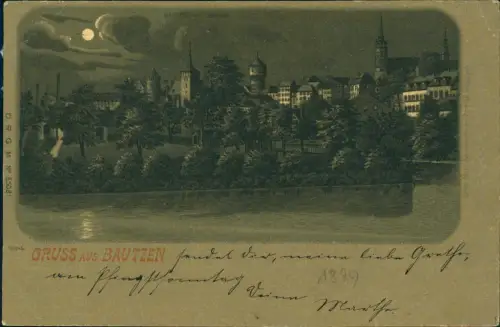 GRUSS AUS BAUTZEN sendet dir, meine liebe Grethe,
am Pfingstsonntag Deine Marthe.
1899